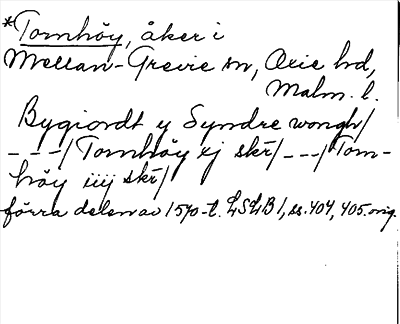 *Tornhöy, åker i
Mellan-Grevie sn, Oxie hd,
Malm. l.
Bygiordt y Syndre wongh/
---/Tornhöy ij skr/---/Torn-
höy iiij skr/
förra delen av 1570-t. LSLB1, ss. 404, 405. orig.